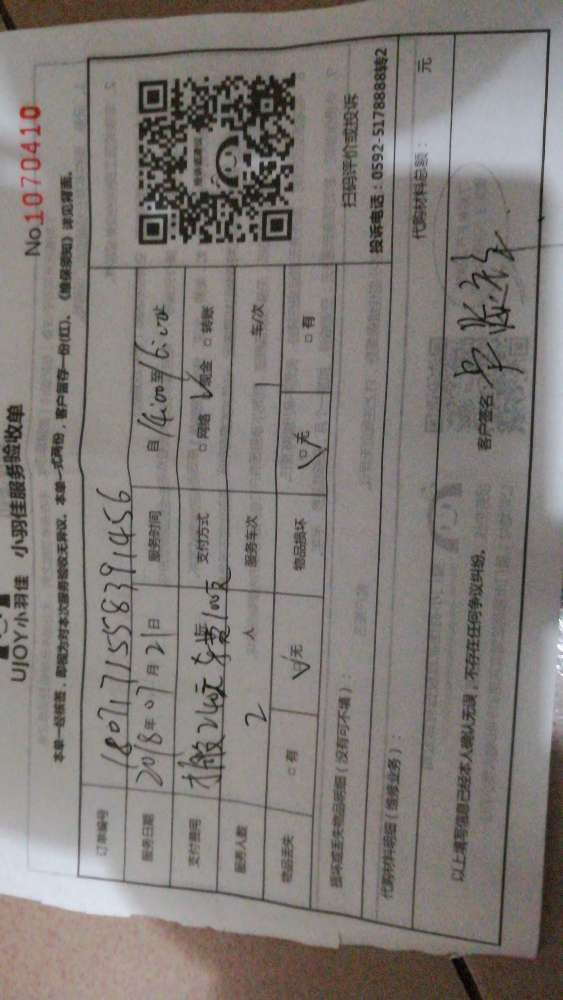 UJOY小羽佳 小羽佳服务验收单
No.1070410
本单一经核签，即视为对本次服务验收无异议。本单一式两份，客户留存一份(红)。《维保须知》详见背面。
订单编号 1807171558391456
服务日期 2018年07月21日 服务时间 自14:00至16:00
支付费用 搬服240元 车费100元 支付方式 □网络 ✓现金 □转账
服务人数 2人 服务车次 1车/次
物品丢失 □有 ✓无 物品损坏 ✓无 □有
扫码评价或投诉
投诉电话：0592-5178888转2
损坏或丢失物品明细（没有可不填）：
代购材料明细（维修业务）： 代购材料总额： 元
以上填写信息已经本人确认无误，不存在任何争议纠纷。 客户签名：